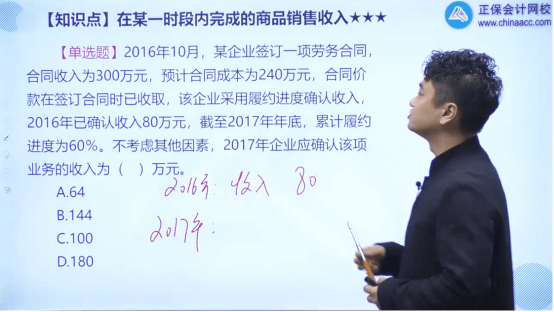 【知识点】在某一时段内完成的商品销售收入★★★
正保会计网校
www.chinaacc.com
【单选题】2016年10月，某企业签订一项劳务合同，
合同收入为300万元，预计合同成本为240万元，合同价
款在签订合同时已收取，该企业采用履约进度确认收入，
2016年已确认收入80万元，截至2017年年底，累计履约
进度为60%。不考虑其他因素，2017年企业应确认该项
业务的收入为（ ）万元。
A.64
B.144
C.100
D.180
2016年：收入 80
2017年：